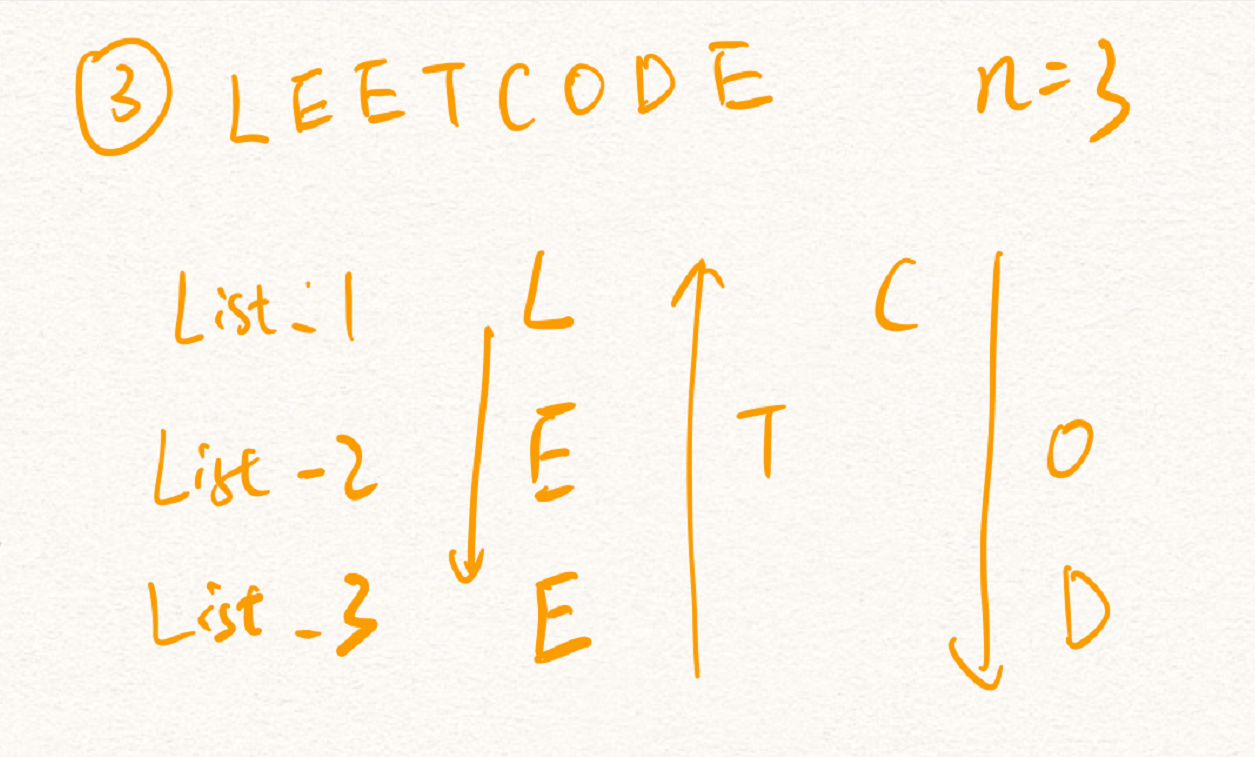 ③ LEETCODE n=3
List-1 L C
List-2 E T O
List-3 E D